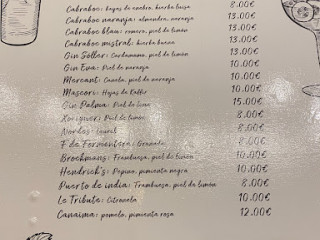 Cabraboc: hojas de enebro, hierba luisa 8.00€
Cabraboc naranja: almendra, naranja 13.00€
Cabraboc blau: romero, piel de limón 13.00€
Cabraboc mistral: hierba buena 13.00€
Gin Sóller: Cardamomo, piel de limón 13.00€
Gin Eva: Piel de naranja 10.00€
Mercant: Canela, piel de naranja 10.00€
Mascaró: Hojas de Kaffir 10.00€
Gin Palma: Piel de lima 15.00€
Xoriguer: Piel de limón 8.00€
Nordés: Laurel 8.00€
F de Formentera: Granada 8.00€
Brockmans: Frambuesa, piel de limón 10.00€
Hendrick's: Pepino, pimienta negra 10.00€
Puerto de india: Frambuesa, piel de limón 8.00€
Le Tribute: Citronela 10.00€
Canaïma: pomelo, pimienta rosa 12.00€